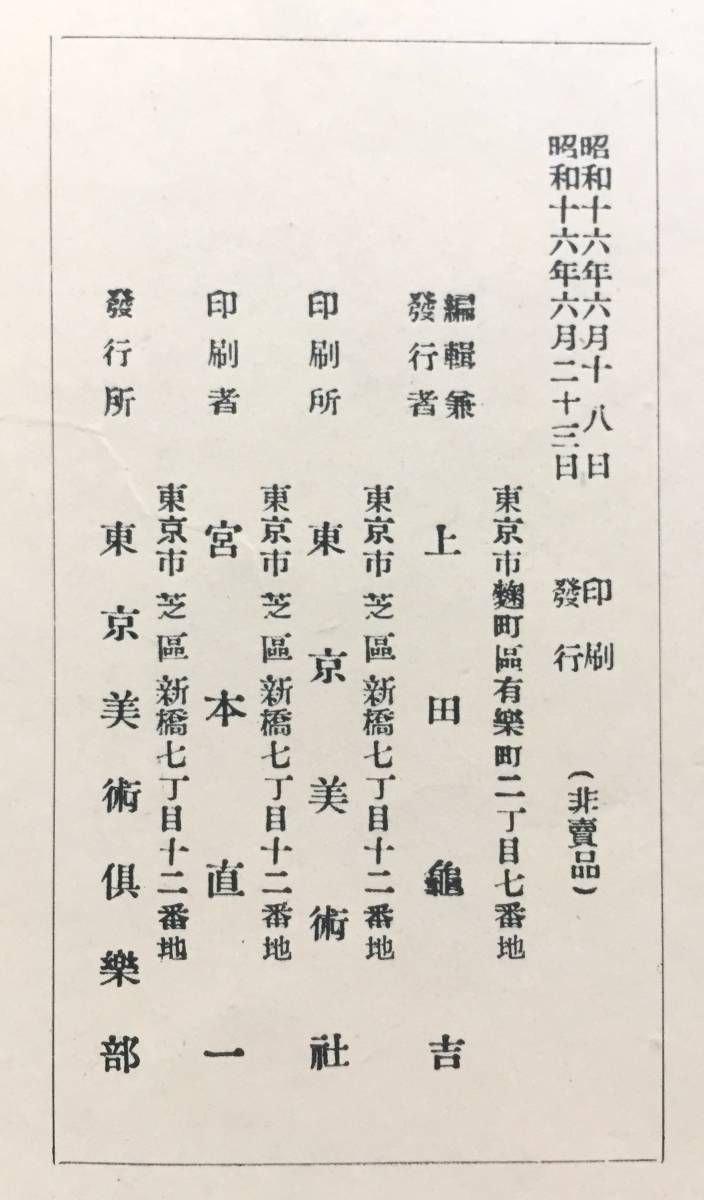 昭和十六年六月十八日 印刷
昭和十六年六月二十三日 發行
(非賣品)
東京市麴町區有樂町二丁目七番地
編輯兼
發行者
上田龜吉
東京市芝區新橋七丁目十二番地
印刷所 東京美術社
東京市芝區新橋七丁目十二番地
印刷者 宮本直一
東京市芝區新橋七丁目十二番地
發行所 東京美術俱樂部